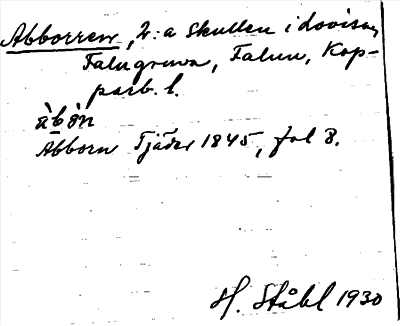 Abborren, 2:a skullen i Lovisa,
Falugruva, Falun, Kop-
parb. l.
àbòn
Abborn Tjäder 1845, fol 8.
H. Ståhl 1930